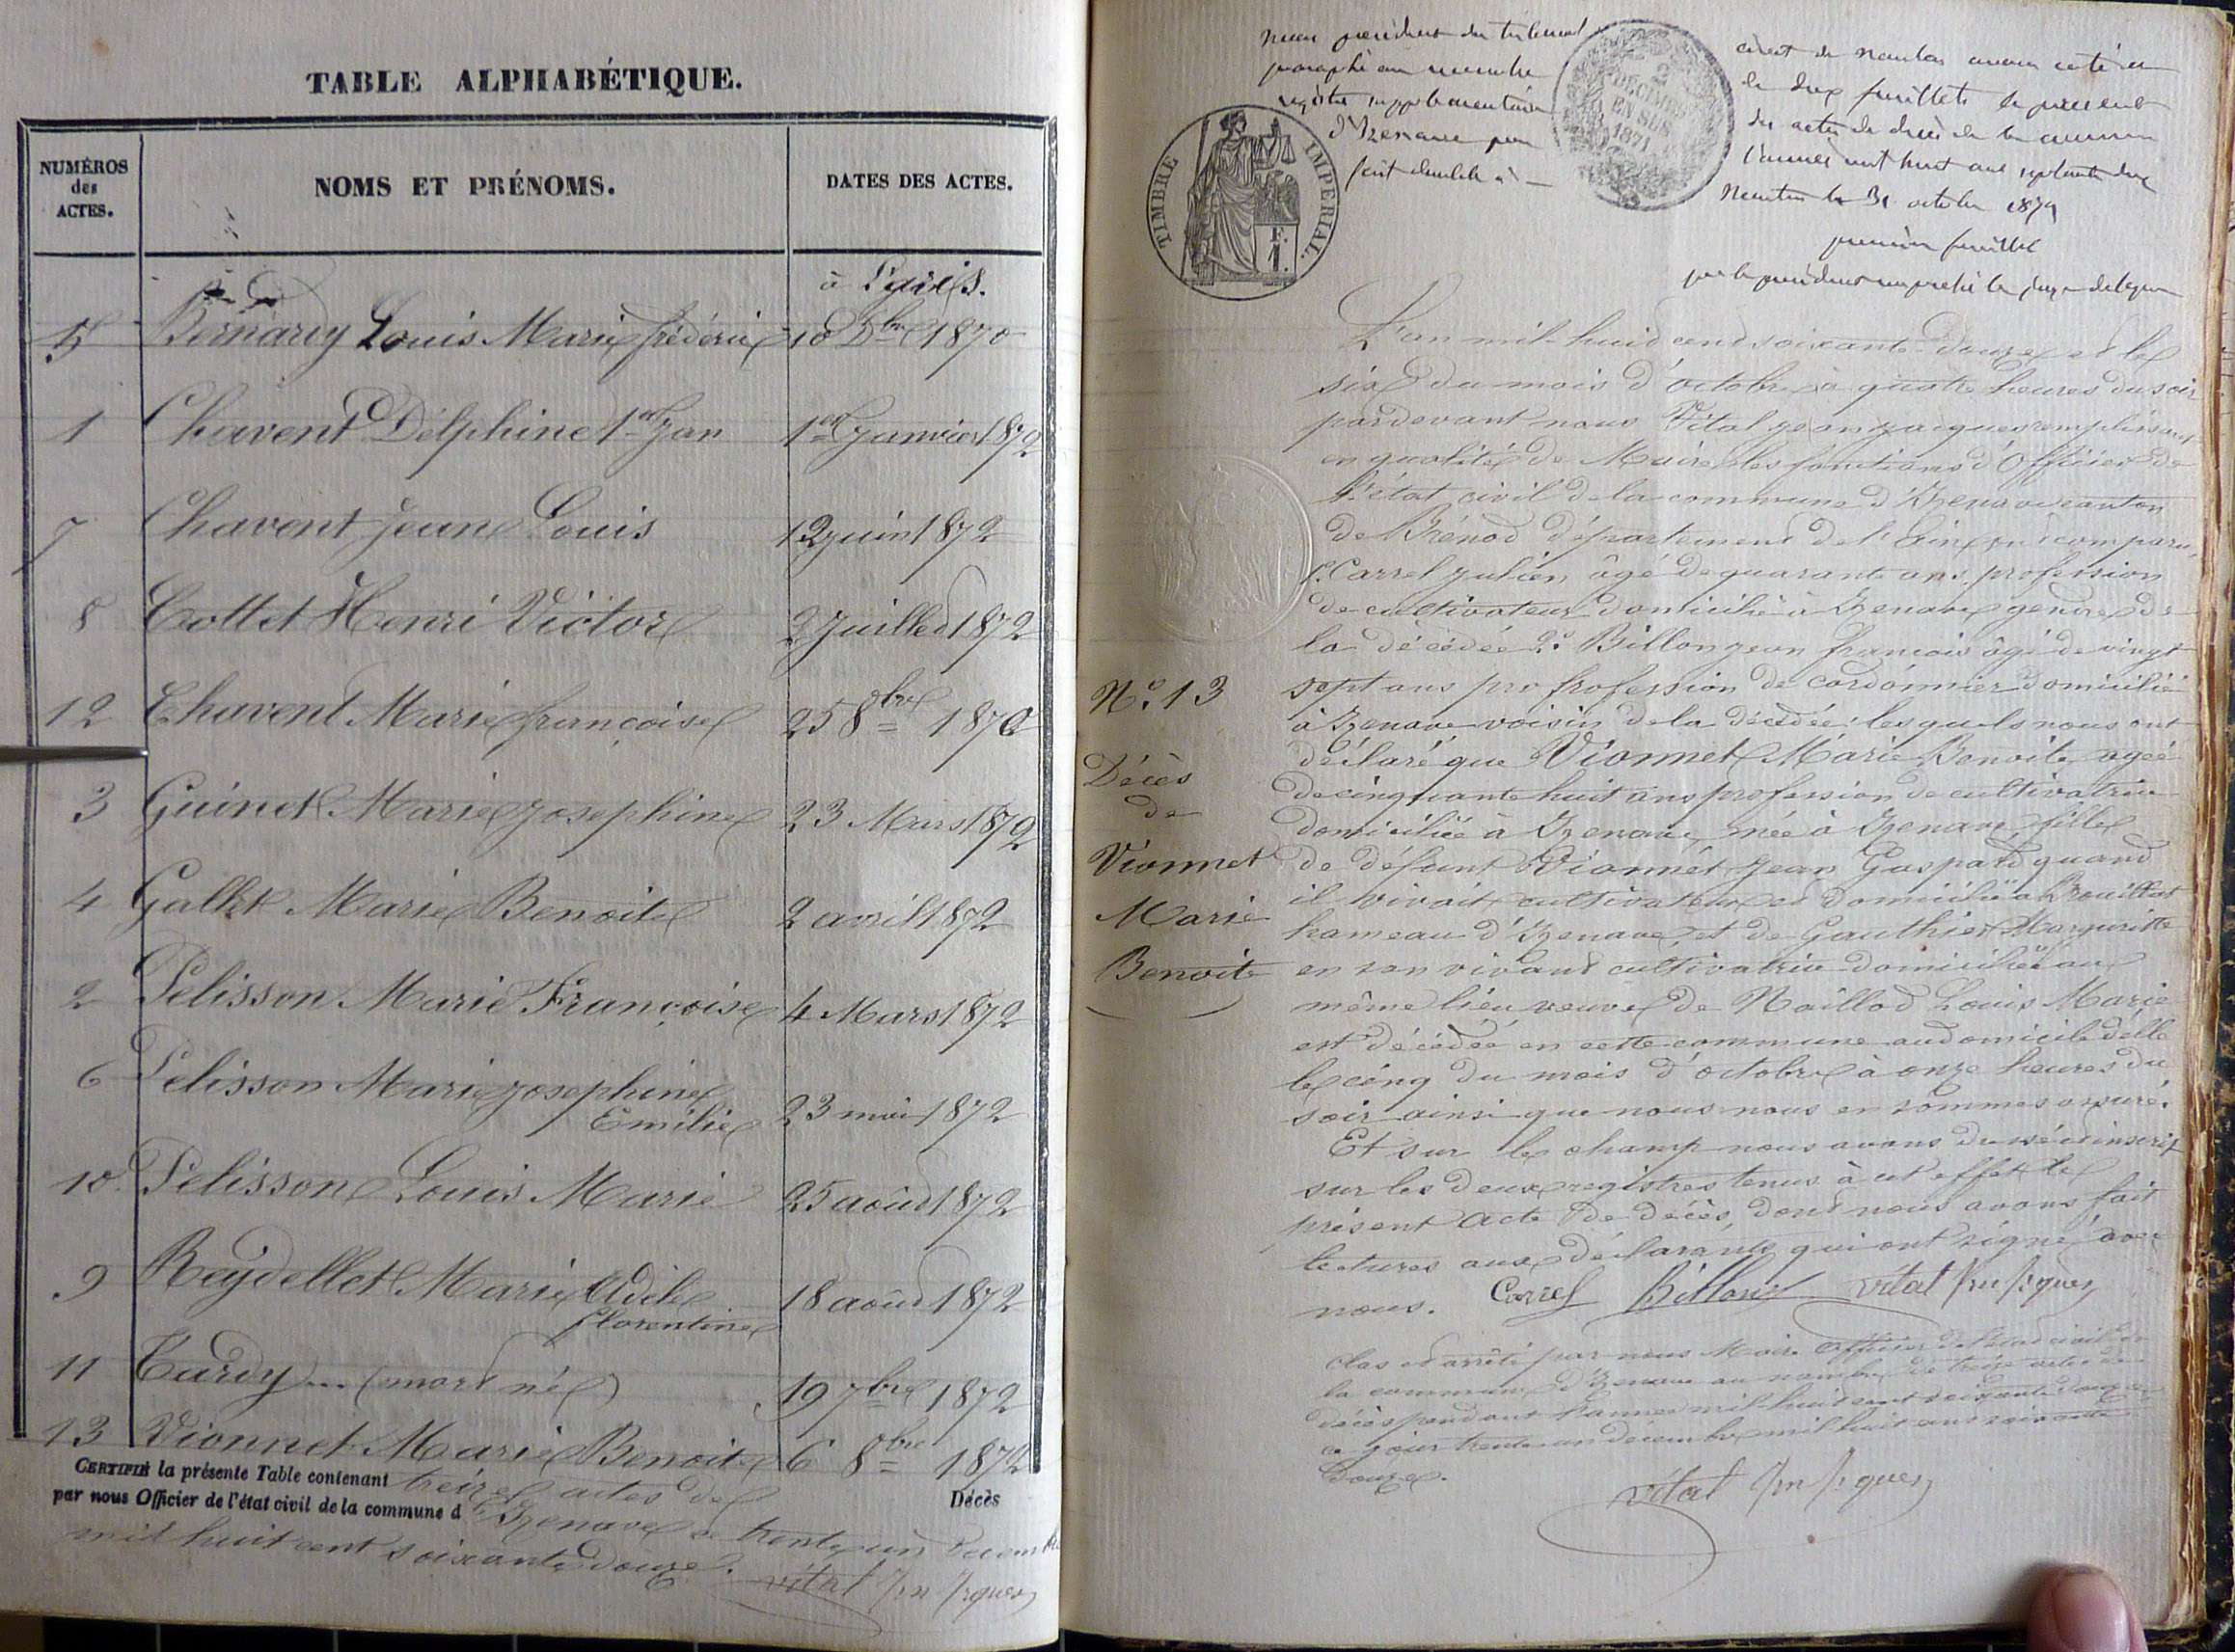 TABLE ALPHABÉTIQUE.
NUMÉROS
des
ACTES.
NOMS ET PRÉNOMS.
DATES DES ACTES.
5 Bernardy Louis Marie frédéric 10 Dbre 1870
1 Chavent Délphine 1er Jan 1er Janvier 1872
7 Chavent Jean Louis 12 juin 1872
8 Cottet Henri Victor 2 Juillet 1872
12 Chavent Marie françoise 25 8bre 1872
3 Guinet Marie Josephine 23 Mars 1872
4 Gallet Marie Benoite 2 avril 1872
2 Pelisson Marie Françoise 4 Mars 1872
6 Pelisson Marie Josephine
Emilie 23 mai 1872
10 Pelisson Louis Marie 25 août 1872
9 Reydellet Marie Adèle
florentine 18 août 1872
11 Tardy... (mort né) 19 7bre 1872
13 Vionnet Marie Benoite 6 8bre 1872
CERTIFIÉ la présente Table contenant treize actes de Décès
par nous Officier de l'état civil de la commune d'Izenave ce trente un Décembre
mil huit cent soixante douze. vital Jn Jques
nous président du tribunal civil de nantua avons coté et
paraphé en deux feuillets le présent
registre supplémentaire des actes de décès de la commune
d'Izenave pour l'année mil huit cent septante deux
fait double à Nantua le 31 octobre 1872
premier feuillet
par le président empêché le juge delégué
TIMBRE IMPÉRIAL.
1 F.
2
DÉCIMES
EN SUS
1871
L'an mil-huit cent soixante-douze et le
six du mois d'octobre à quatre heures du soir
pardevant nous Vital jean jacques remplissant
en qualité de Maire les fonctions d'Officier de
l'état civil de la commune d'Izenave canton
de Brénod département de l'Ain ont comparu,
1° Carrel julien âgé de quarante ans profession
de cultivateur domicilié à Izenave gendre de
la décédée 2° Billon jean françois âgé de vingt
sept ans pro frofession de cordonnier domicilié
à Izenave voisin de la décédée: lesquels nous ont
déclaré que Vionnet Marie Benoite agée
de cinquante huit ans profession de cultivatrice
domiciliée à Izenave, née à Izenave fille
de défunt Vionnet Jean Gaspard quand
il vivait cultivateur et domicilié à
hameau d'Izenave, et de Gauthier Marguritte
en son vivant cultivatrice domiciliée au
même lieu veuve de Louis Marie
est décédée en cette commune au domicile d'elle
le cinq du mois d'octobre à onze heures du
soir ainsi que nous nous en sommes assuré.
Et sur le champ nous avons dressé et inscrit
sur les deux registres tenus à cet effet le
présent acte de décès, dont nous avons fait
lectures aux déclarants qui ont signé avec
nous. Carrel Billon vital Jn Jques
N° 13
Décès
de
Vionnet
Marie
Benoite
Clos et arrêté par nous Maire Officier de l'état civil de
la commune d'Izenave au nombre de treize actes de
décès pendant l'année mil huit cent soixante douze
ce jour trente un décembre mil huit cent soixante
Douze.
vital Jn Jques